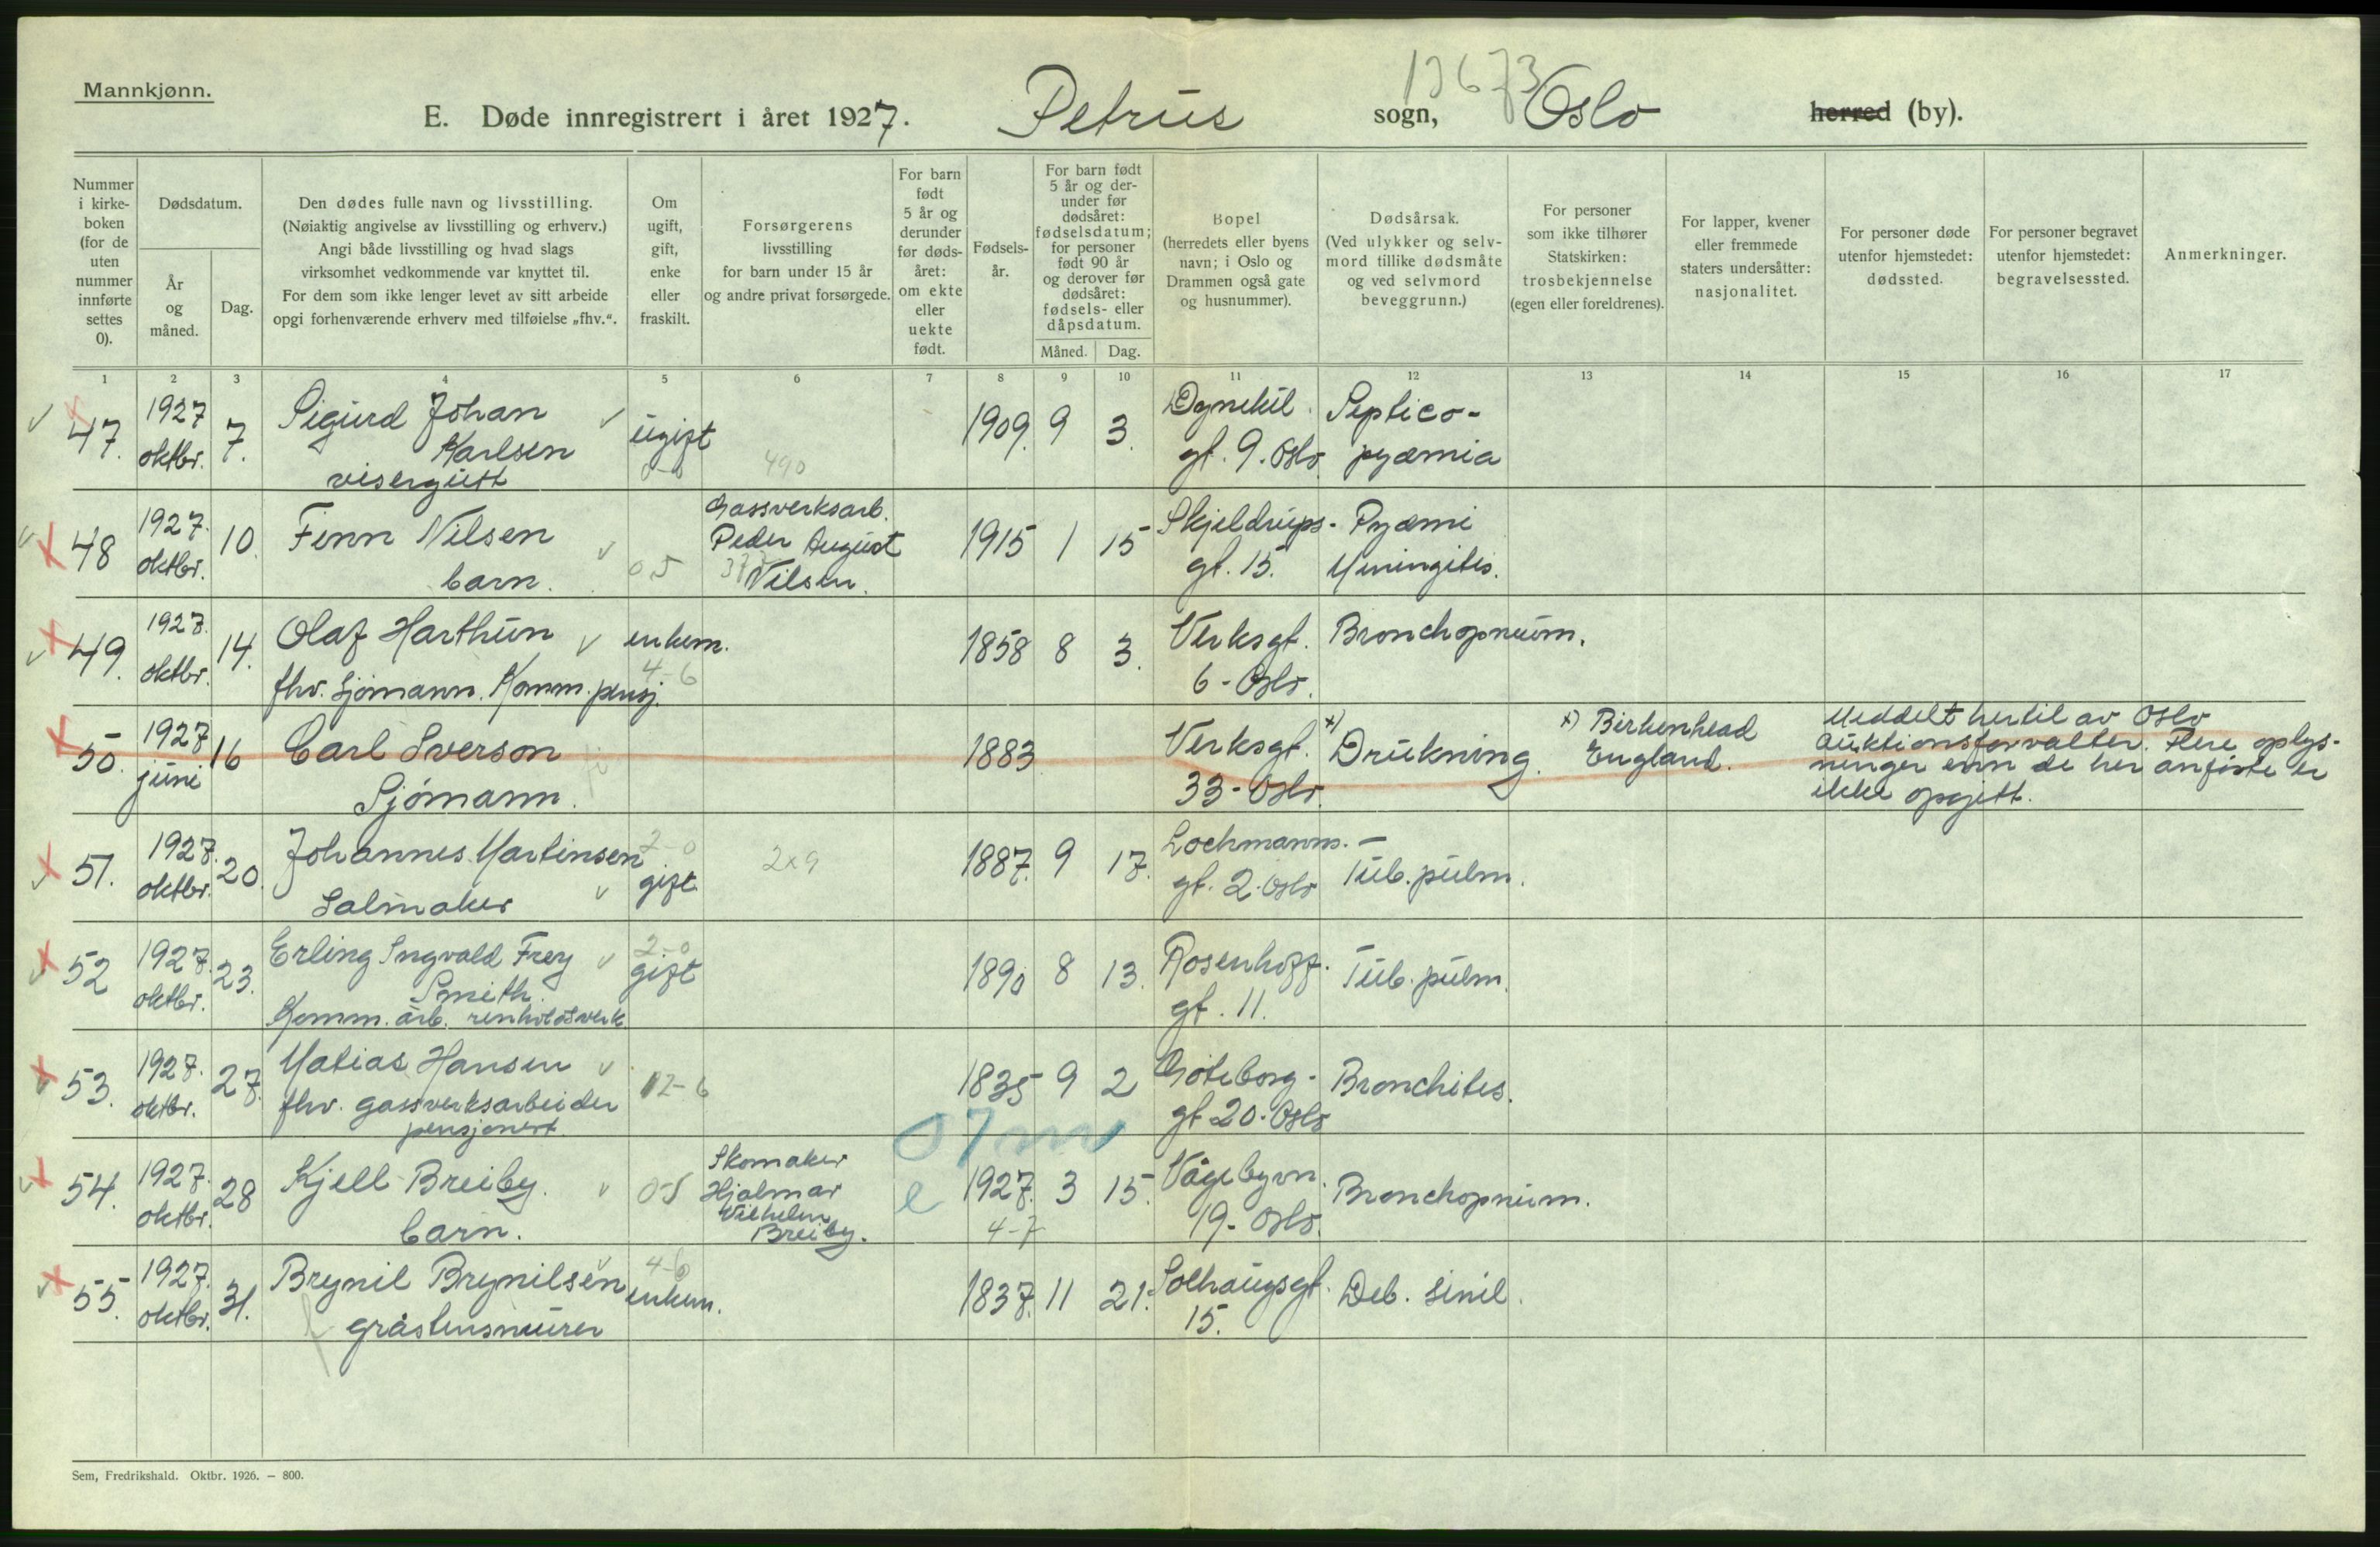 Mannkjønn.
E. Døde innregistrert i året 1927.
Petrus
sogn,
13673
Oslo
herred (by).
Nummer i kirke-boken (for de uten nummer innførte settes 0).
Dødsdatum.
År og måned.
Dag.
Den dødes fulle navn og livsstilling.
(Nøiaktig angivelse av livsstilling og erhverv.)
Angi både livsstilling og hvad slags
virksomhet vedkommende var knyttet til.
For dem som ikke lenger levet av sitt arbeide
opgi forhenværende erhverv med tilføielse „fhv.“.
Om ugift, gift, enke eller fraskilt.
Forsørgerens
livsstilling
for barn under 15 år
og andre privat forsørgede.
For barn født 5 år og derunder før døds-året: om ekte eller uekte født.
Fødsels-år.
For barn født 5 år og der-under før dødsåret: fødselsdatum; for personer født 90 år og derover før dødsåret: fødsels- eller dåpsdatum.
Måned.
Dag.
Bopel
(herredets eller byens
navn; i Oslo og
Drammen også gate
og husnummer).
Dødsårsak.
(Ved ulykker og selv-
mord tillike dødsmåte
og ved selvmord
beveggrunn.)
For personer
som ikke tilhører
Statskirken:
trosbekjennelse
(egen eller foreldrenes).
For lapper, kvener
eller fremmede
staters undersåtter:
nasjonalitet.
For personer døde
utenfor hjemstedet:
dødssted.
For personer begravet
utenfor hjemstedet:
begravelsessted.
Anmerkninger.
1 2 3 4 5 6 7 8 9 10 11 12 13 14 15 16 17
47. 1927 oktbr. 7.
Sigurd Johan
Karlsen
visergutt
ugift
0-0
490
1909. 9 3.
Dynekil.
gt. 9. Oslo
Septico-
pyæmia
48 1927. oktbr. 10.
Finn Nilsen
barn.
05
Gassverksarb.
Peder August
Nilsen.
1915 1 15
Skjeldrups-
gt. 15.
Pyæmi
Meningites.
49. 1927. oktbr. 14.
Olaf Harthun
fhv. Sjømann. Komm. pensj.
enkem.
4-6
1858 8 3.
Verksgt.
6 - Oslo.
Bronchopneum.
50. 1927 juni 16
Carl Sverson
Sjømann.
1883
Verksgt.
33 - Oslo.
x) Drukning.
x) Birkenhead
England.
Meddelt hertil av Oslo
auktionsforvalter. Flere oplys-
ninger enn de her anførte er
ikke opgitt.
51. 1927. oktbr. 20.
Johannes Martinsen
Salmaker
2-0
gift.
2x9
1887. 9 17.
Lochmanns.-
gt. 2. Oslo
Tub. pulm.
52 1927. oktbr. 23.
Erling Ingvald Frey
Smith.
Komm. arb. renholdsverk
2-0
gift
1890 8 13.
Rosenhoff.
gt. 11.
Tub. pulm.
53. 1927. oktbr. 27.
Matias Hansen
fhv. gassverksarbeider
pensjonert
12-6
1835 9 2
Gøteborg-
gt 20. Oslo
Bronchites.
07m
54. 1927. oktbr. 28
Kjell Breiby.
barn.
05
Skomaker
Hjalmar
Vilhelm
Breiby.
e
1927. 3 15.
4-7
Vågebyvn.
19 - Oslo.
Bronchopneum.
55. 1927. oktbr. 31.
Brynil Brynilsen
gråstensmurer
4-6
enkem.
1837. 11 21.
Solhaugsgt.
15.
Deb. senil.
Sem, Fredrikshald. Oktbr. 1926. – 800.